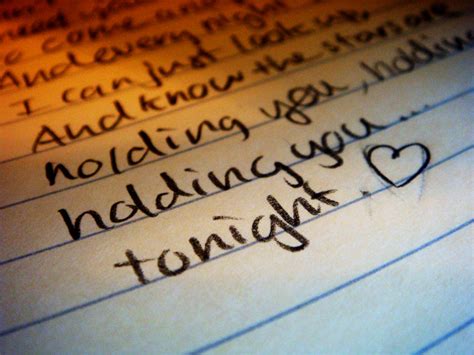 come
And every night
I can just look up,
And know the stars are
holding you, holdin
holding you...
tonight. ♡